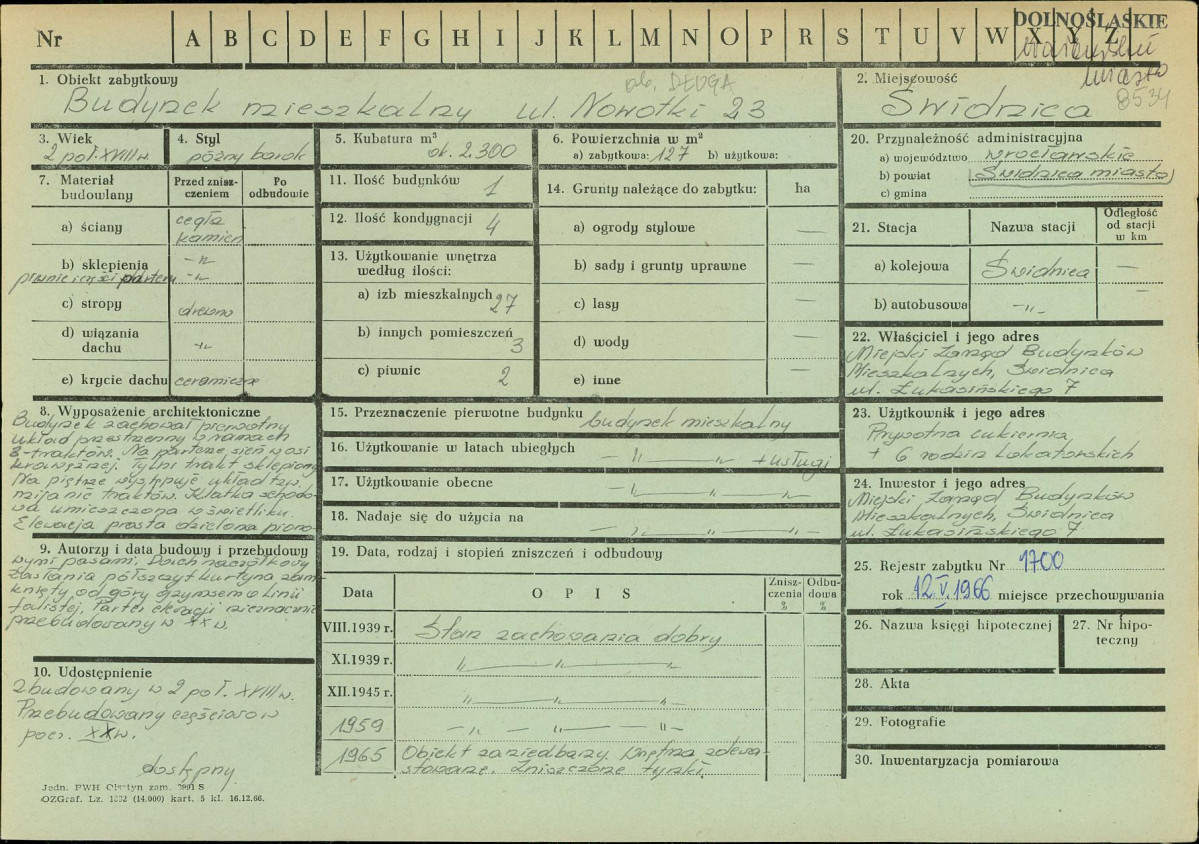 Nr A B C D E F G H I J K L M N O P R S T U V W X Y Z
DOLNOŚLĄSKIE
miasto
8534
1. Obiekt zabytkowy
ob. DŁUGA
Budynek mieszkalny ul. Nowotki 23
2. Miejscowość
Świdnica
3. Wiek
2 poł. XVIII w
4. Styl
późny barok
5. Kubatura m³
ok. 2.300
6. Powierzchnia w m²
a) zabytkowa: 127 b) użytkowa:
20. Przynależność administracyjna
a) województwo wrocławskie
b) powiat Świdnica miasto
c) gmina
7. Materiał budowlany
Przed zniszczeniem
Po odbudowie
a) ściany
cegła
kamień
b) sklepienia
-"-
piwnic i części parteru
-"-
c) stropy
drewno
d) wiązania dachu
-"-
e) krycie dachu ceramiczne
11. Ilość budynków 1
12. Ilość kondygnacji 4
13. Użytkowanie wnętrza według ilości:
a) izb mieszkalnych 27
b) innych pomieszczeń 3
c) piwnic 2
14. Grunty należące do zabytku: ha
a) ogrody stylowe —
b) sady i grunty uprawne —
c) lasy —
d) wody —
e) inne —
21. Stacja
Nazwa stacji
Odległość od stacji w km
a) kolejowa Świdnica —
b) autobusowa -"- —
22. Właściciel i jego adres
Miejski Zarząd Budynków
Mieszkalnych, Świdnica
ul. Łukasińskiego 7
8. Wyposażenie architektoniczne
Budynek zachował pierwotny
układ przestrzenny w ramach
3-traktów. Na parterze sień w osi
krańcowej. Tylni trakt sklepiony
Na piętrze występuje układ tzw.
mijanie traktów. Klatka schodo-
wa umieszczona w świetliku.
Elewacja prosta dzielona piono-
9. Autorzy i data budowy i przebudowy
wymi pasami. Dach naczółkowy
zasłania półszczyt kurtyna zam-
knięty od góry gzymsem o linii
falistej. Parter elewacji nieznacznie
przebudowany w XX w.
10. Udostępnienie
Zbudowany w 2 poł. XVIII w.
Przebudowany częściowo w
pocz. XX w.
dostępny
15. Przeznaczenie pierwotne budynku budynek mieszkalny
16. Użytkowanie w latach ubiegłych -"- + usługi
17. Użytkowanie obecne -"- "- "-
18. Nadaje się do użycia na -"- "- "-
19. Data, rodzaj i stopień zniszczeń i odbudowy
Data
O P I S
Zniszczenia %
Odbudowa %
VIII.1939 r. Stan zachowania dobry
XI.1939 r. "- "- "-
XII.1945 r. "- "- "-
1959 -"- "- "-
1965 Obiekt zaniedbany. Wnętrza zdewa-
stowane. Zniszczone tynki.
23. Użytkownik i jego adres
Prywatna cukiernia
+ 6 rodzin lokatorskich
24. Inwestor i jego adres
Miejski Zarząd Budynków
Mieszkalnych, Świdnica
ul. Łukasińskiego 7
25. Rejestr zabytku Nr 1700
rok 12.V.1966 miejsce przechowywania
26. Nazwa księgi hipotecznej
27. Nr hipoteczny
28. Akta
29. Fotografie
30. Inwentaryzacja pomiarowa
Jedn. PWH Olsztyn zam. 2991 S
OZGraf. Lz. 1332 (14.000) kart. 5 kl. 16.12.66.